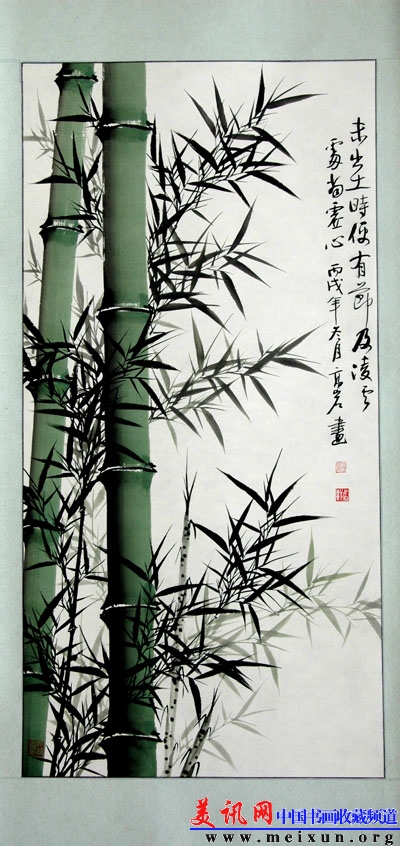 未出土時便有節及淩雲
處尚虛心 丙戌年冬月 高岩畫
美讯网 中国书画收藏频道
www.meixun.org